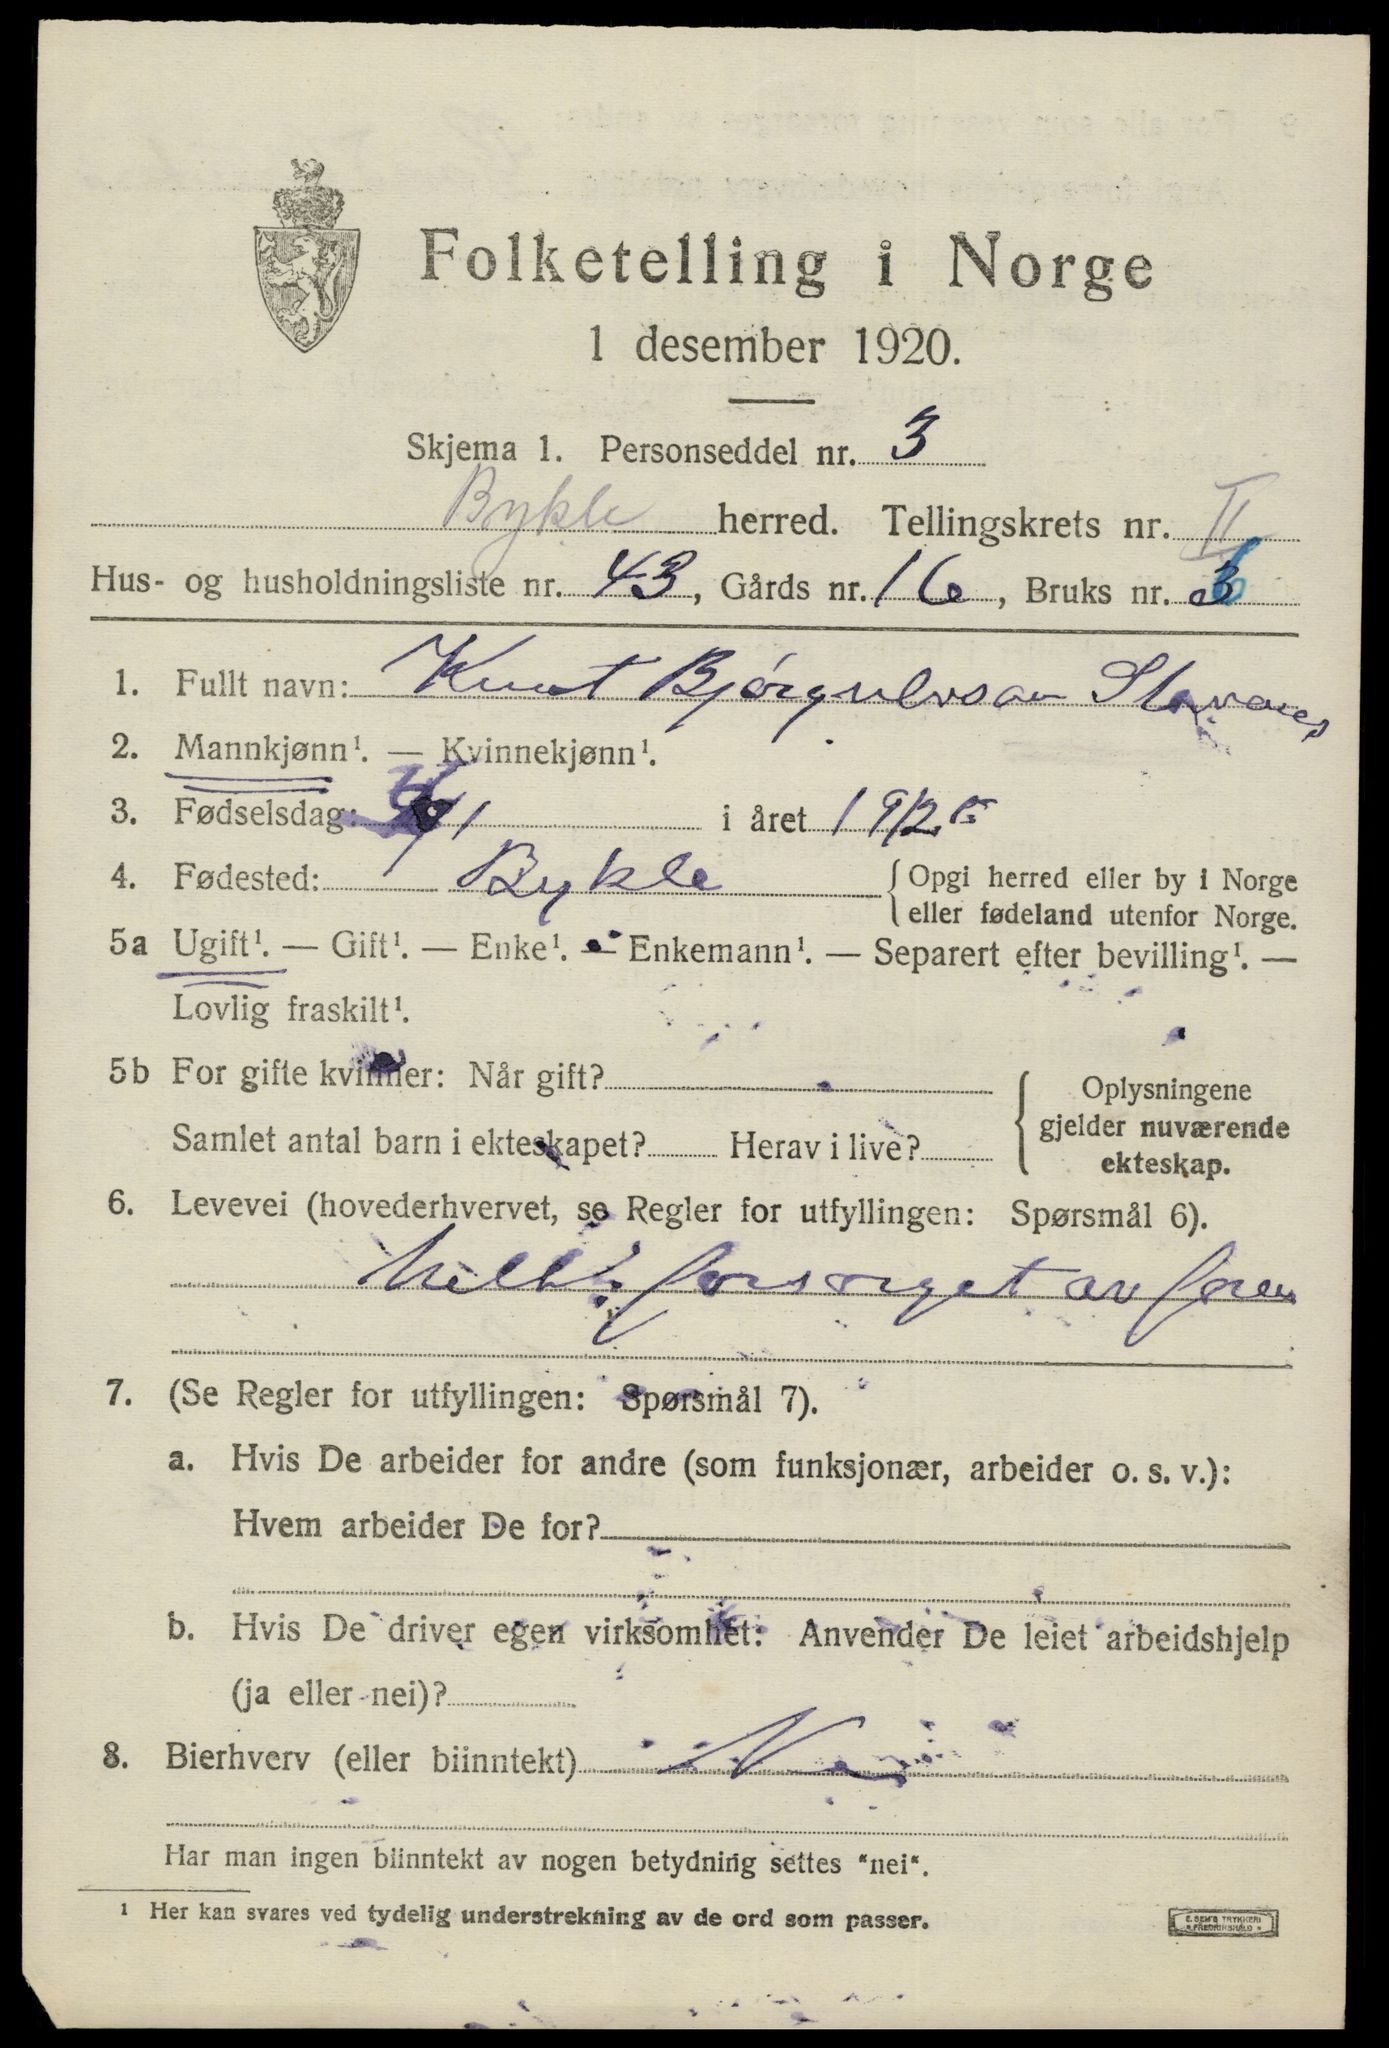 Folketelling i Norge
1 desember 1920.
Skjema 1. Personseddel nr. 3
Bykle herred. Tellingskrets nr. II
Hus- og husholdningsliste nr. 43, Gårds nr. 16, Bruks nr.
1. Fullt navn: Knut Bjørgulvson
2. Mannkjønn¹. — Kvinnekjønn¹.
3. Fødselsdag: i året
4. Fødested: Bykle {Opgi herred eller by i Norge
eller fødeland utenfor Norge.
5a Ugift¹. — Gift¹. — Enke¹. — Enkemann¹. — Separert efter bevilling¹. —
Lovlig fraskilt¹.
5b For gifte kvinner: Når gift?
Samlet antal barn i ekteskapet? Herav i live?
Oplysningene
gjelder nuværende
ekteskap.
6. Levevei (hovederhvervet, se Regler for utfyllingen: Spørsmål 6).
forsørget av
7. (Se Regler for utfyllingen: Spørsmål 7).
a. Hvis De arbeider for andre (som funksjonær, arbeider o. s. v.):
Hvem arbeider De for?
b. Hvis De driver egen virksomhet: Anvender De leiet arbeidshjelp
(ja eller nei)?
8. Bierhverv (eller biinntekt) Nei
Har man ingen biinntekt av nogen betydning settes "nei".
¹ Her kan svares ved tydelig understrekning av de ord som passer.
E. SEM'S TRYKKERI
* FREDRIKSHALD *